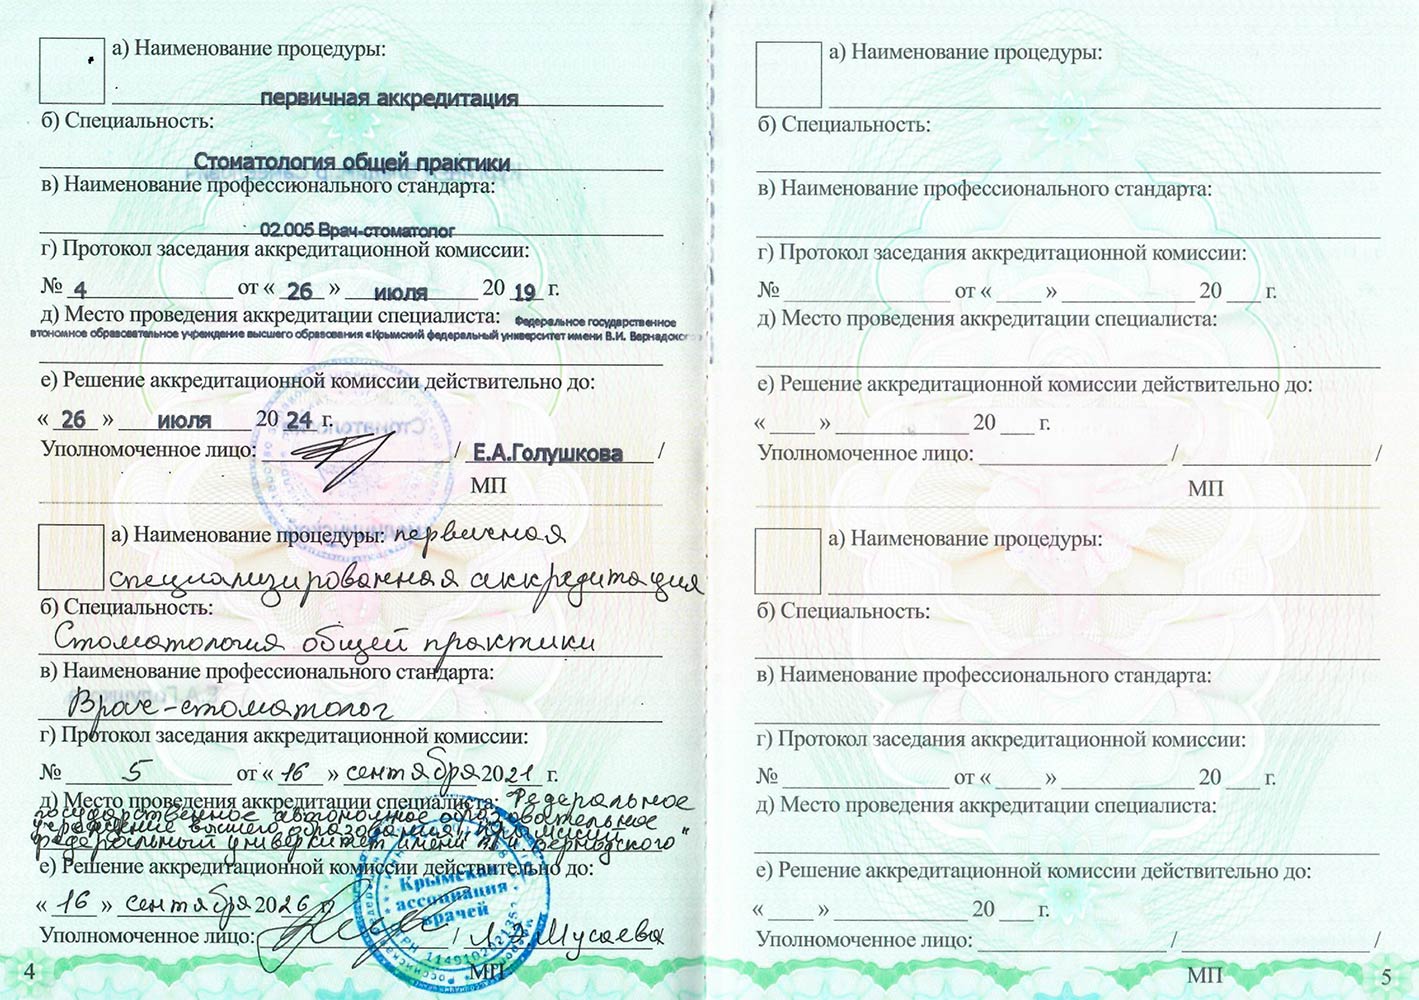 а) Наименование процедуры:
первичная аккредитация
б) Специальность:
Стоматология общей практики
в) Наименование профессионального стандарта:
02.005 Врач-стоматолог
г) Протокол заседания аккредитационной комиссии:
№ 4 от « 26 » июля 20 19 г.
д) Место проведения аккредитации специалиста: Федеральное государственное
втономное образовательное учреждение высшего образования «Крымский федеральный университет имени В.И. Вернадского
е) Решение аккредитационной комиссии действительно до:
« 26 » июля 20 24 г.
Уполномоченное лицо: / Е.А.Голушкова /
МП
а) Наименование процедуры: первичная
специализированная аккредитация
б) Специальность:
Стоматология общей практики
в) Наименование профессионального стандарта:
Врач-стоматолог
г) Протокол заседания аккредитационной комиссии:
№ 5 от « 16 » сентября 2021 г.
д) Место проведения аккредитации специалиста: Федеральное
государственное автономное образовательное
учреждение высшего образования "Крымский
федеральный университет имени В.И. Вернадского"
е) Решение аккредитационной комиссии действительно до:
« 16 » сентября 2026 г.
Уполномоченное лицо: / Мусаева
МП
Крымская
ассоциация
врачей
4
а) Наименование процедуры:
б) Специальность:
в) Наименование профессионального стандарта:
г) Протокол заседания аккредитационной комиссии:
№ от « » 20 г.
д) Место проведения аккредитации специалиста:
е) Решение аккредитационной комиссии действительно до:
« » 20 г.
Уполномоченное лицо: / /
МП
а) Наименование процедуры:
б) Специальность:
в) Наименование профессионального стандарта:
г) Протокол заседания аккредитационной комиссии:
№ от « » 20 г.
д) Место проведения аккредитации специалиста:
е) Решение аккредитационной комиссии действительно до:
« » 20 г.
Уполномоченное лицо: / /
МП
5